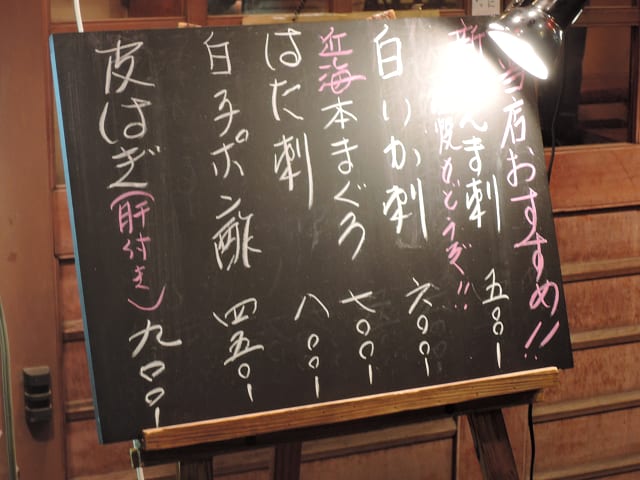 当店おすすめ!!
んま刺 五〇〇ー
がどうぞ!!
白いか刺 六〇〇ー
近海本まぐろ 七〇〇ー
はた刺 八〇〇ー
白子ポン酢 四五〇ー
皮はぎ(肝付き) 九〇〇ー